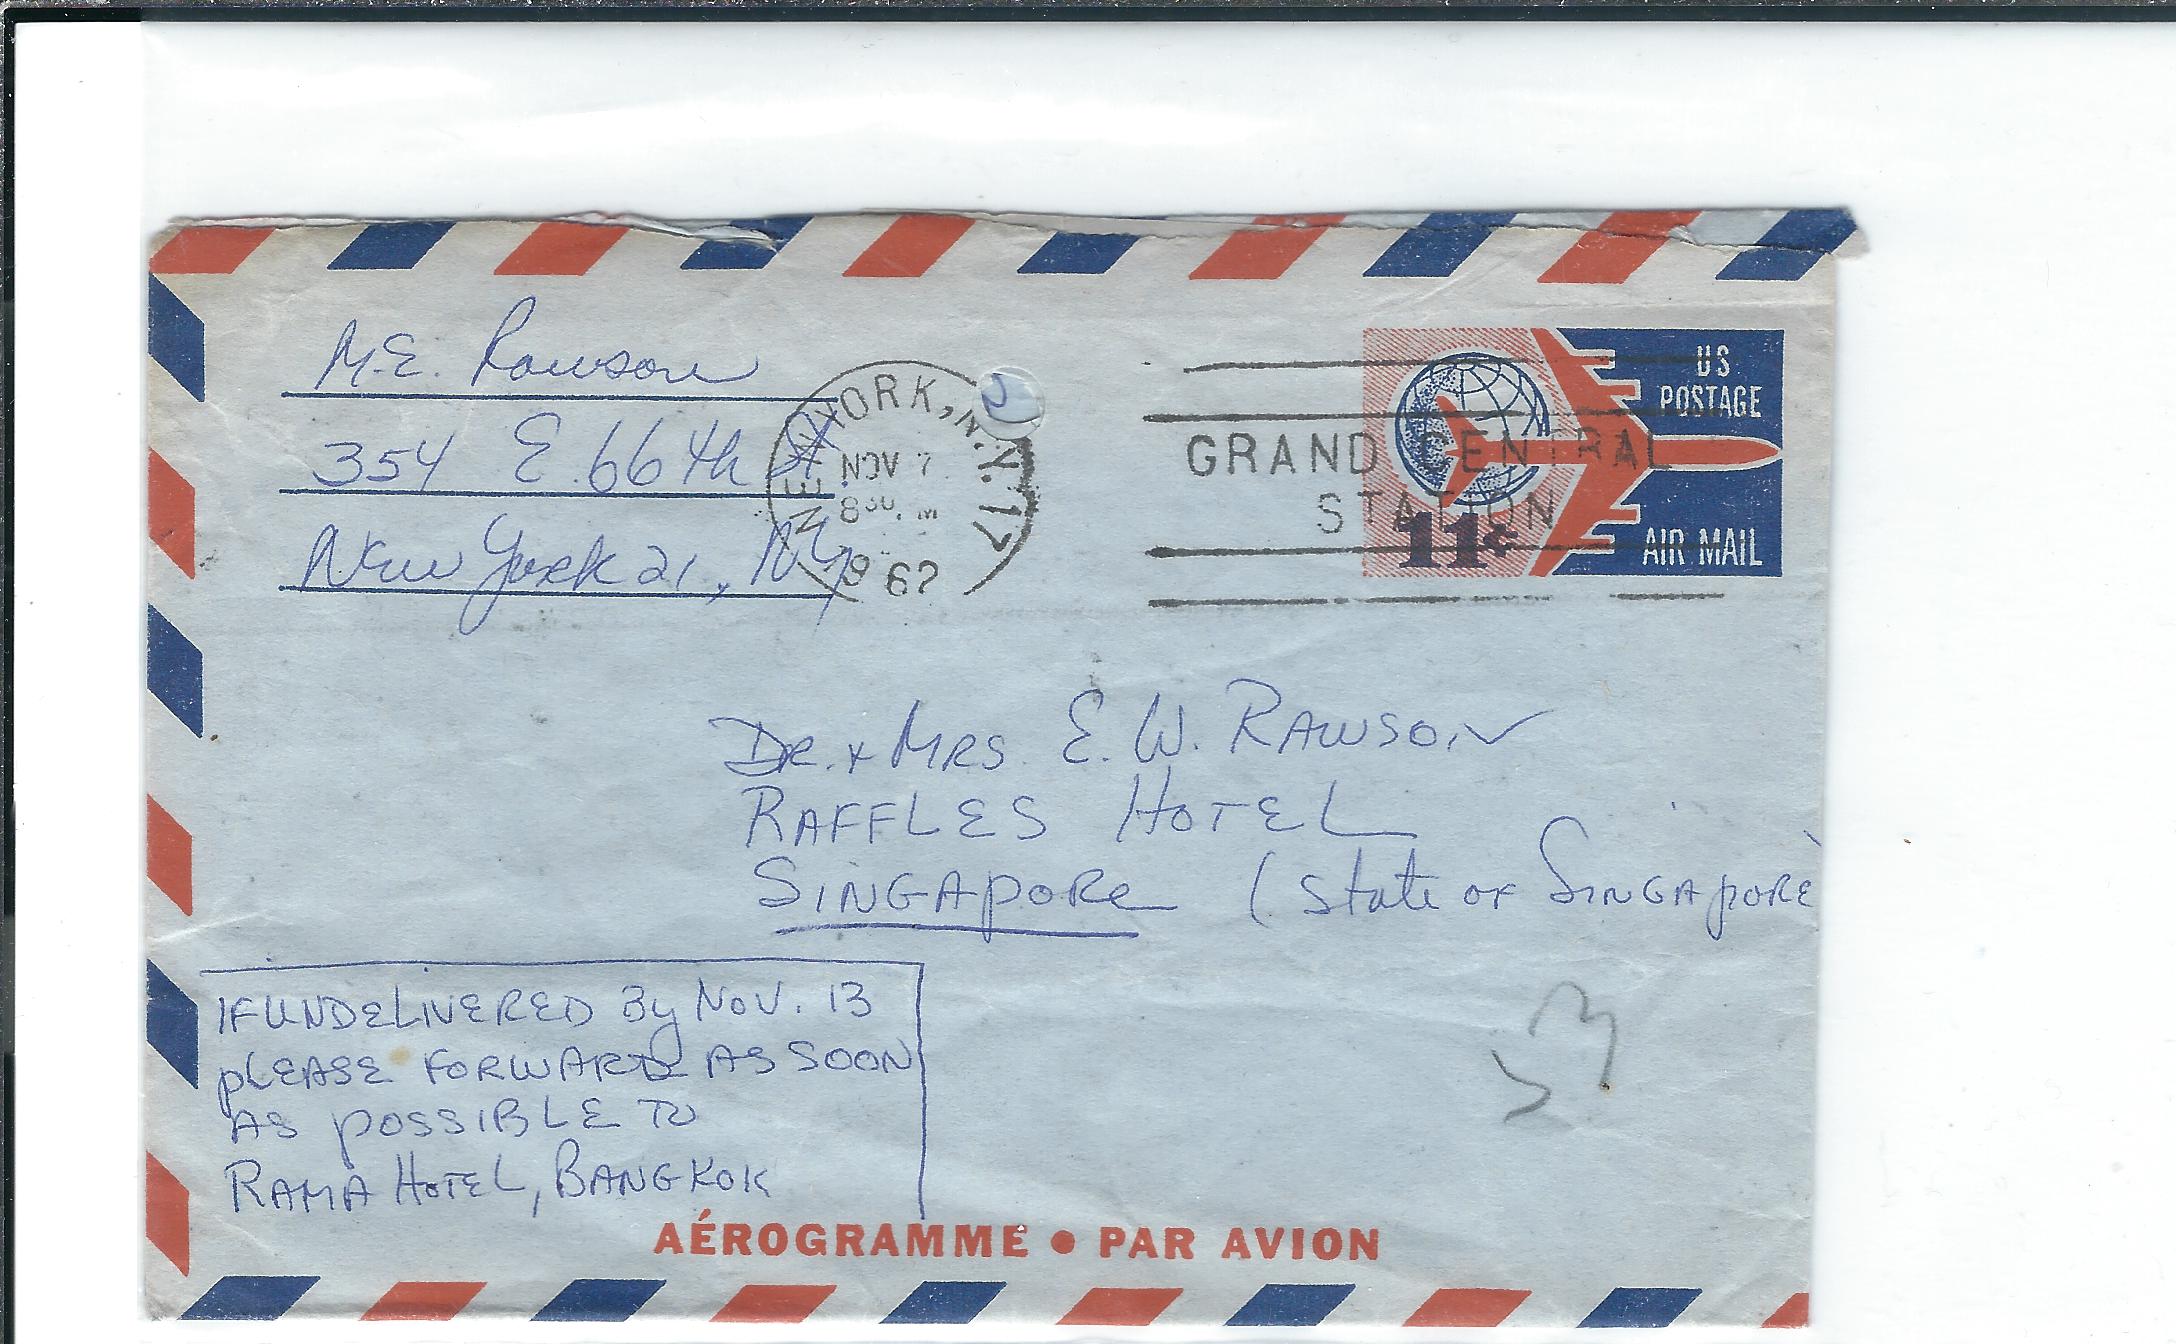 M.E. Rawson
354 E. 66th St.
New York 21, N.Y.
NEW YORK, N.Y. 17
NOV 7
8
GRAND CENTRAL
STATION
US
POSTAGE
11¢
AIR MAIL
DR. + MRS. E. W. RAWSON
RAFFLES HOTEL
SINGAPORE (State OF SINGAPORE
IF UNDELIVERED By NOV. 13
pLEASE FORWARD AS SOON
AS pOSSIBLE TO
RAMA HOTEL, BANGKOK
AÉROGRAMME • PAR AVION